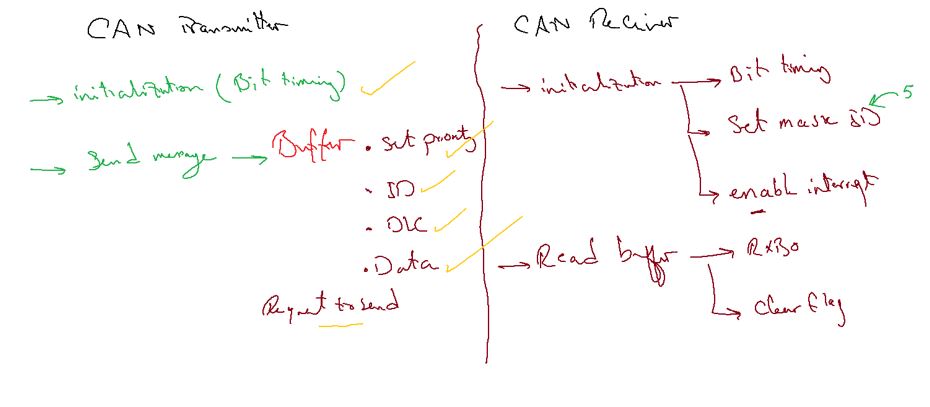 CAN Transmitter
→ initialization (Bit timing)
→ Send message → Buffer • Set priority
• ID
• DLC
• Data
Request to send
CAN Reciver
→ initialization → Bit timing
→ Set mask ID
5
→ enable interrupt
→ Read buffer → RxB0
→ Clear flag